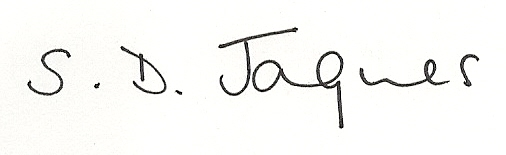 S. D. Jaques